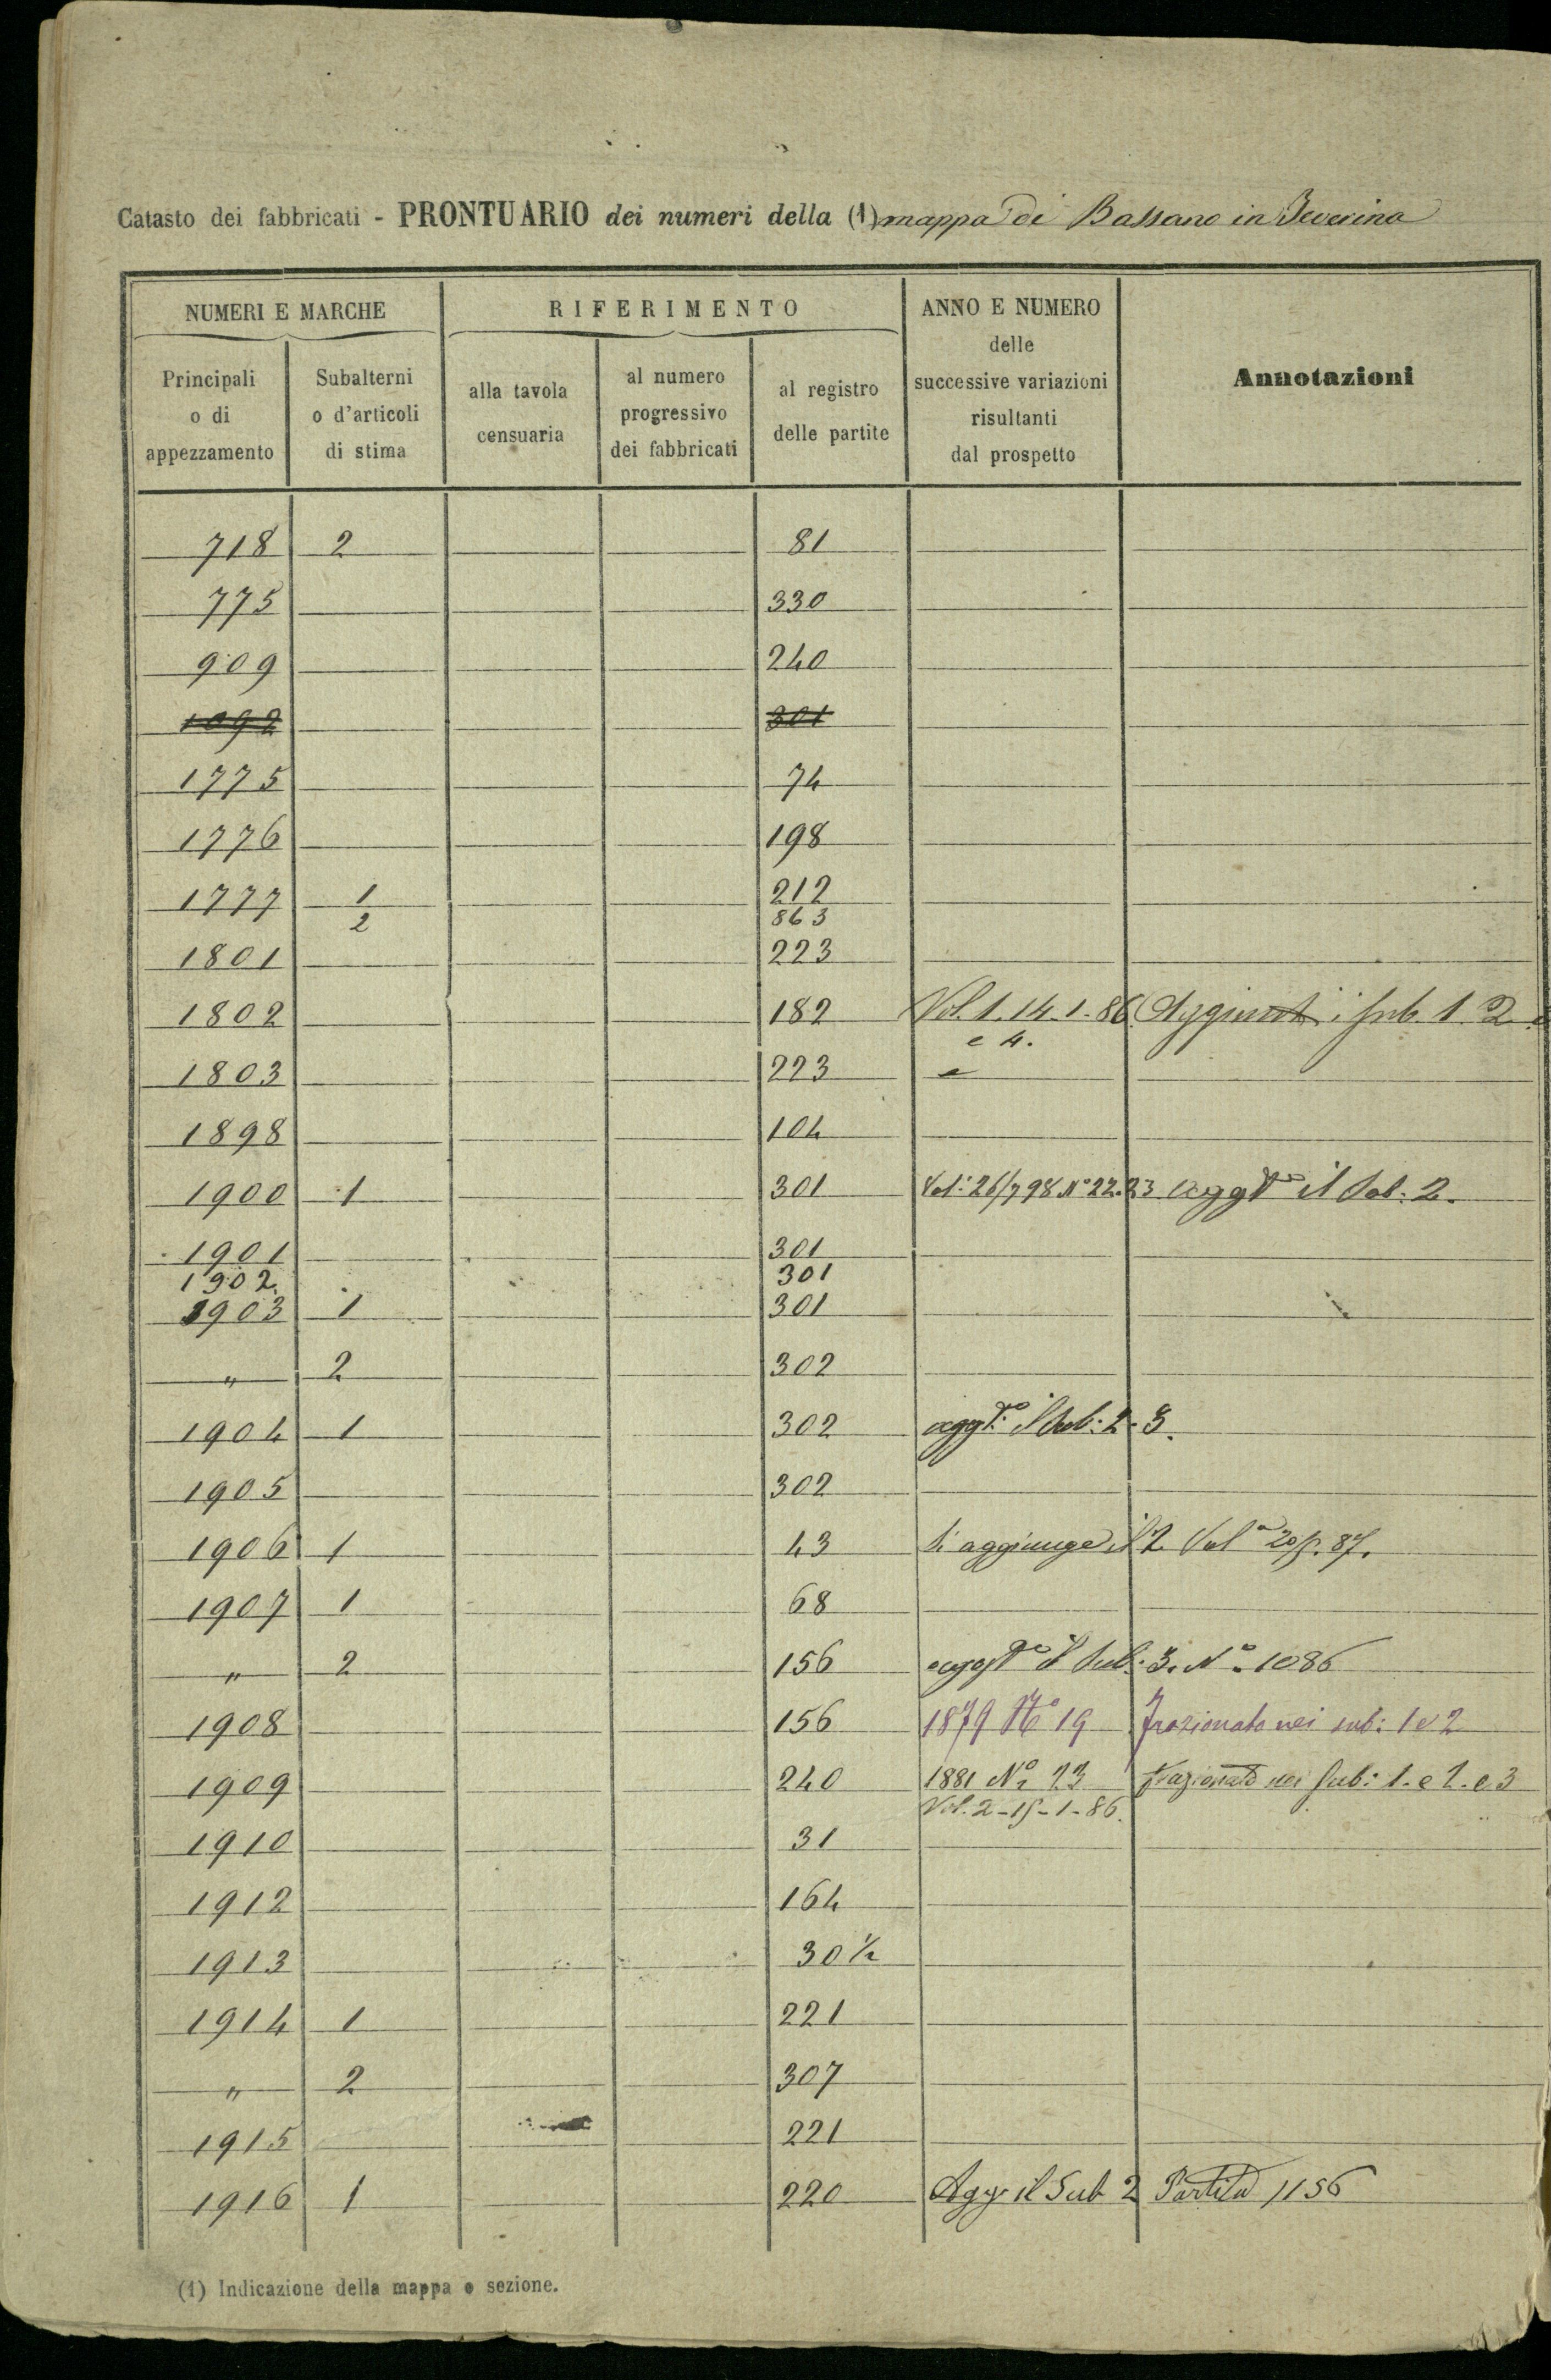 Catasto dei fabbricati - PRONTUARIO dei numeri della (1) mappa di Bassano in Teverina
NUMERI E MARCHE
RIFERIMENTO
ANNO E NUMERO
delle
successive variazioni
risultanti
dal prospetto
Annotazioni
Principali
o di
appezzamento
Subalterni
o d'articoli
di stima
alla tavola
censuaria
al numero
progressivo
dei fabbricati
al registro
delle partite
718 2 81
775 330
909 240
1092 301
1775 74
1776 198
1777 1 212
2 863
1801 223
1802 182 Vol. 1. 14-1-86 Aggiunti i sub. 1. 2
e 4.
1803 223 e
1898 104
1900 1 301 Vol: 26/7 98 Nº 22.23 aggto il Sub: 2.
1901 301
1902 301
1903 1 301
" 2 302
1904 1 302 aggto: il Sub: 2-3.
1905 302
1906 1 43 Si aggiunge il 2 87.
1907 1 68
" 2 156 aggto il Sub: 3. Nº 1086
1908 156 1879 Nº 19 frazionato nei sub: 1 e 2
1909 240 1881 Nº 23 frazionato nei Sub: 1. e 2. e 3
Vol. 2-15-1-86.
1910 31
1912 164
1913 30 1/2
1914 1 221
" 2 307
1915 221
1916 1 220 Agg il Sub 2 Partita 1156
(1) Indicazione della mappa o sezione.